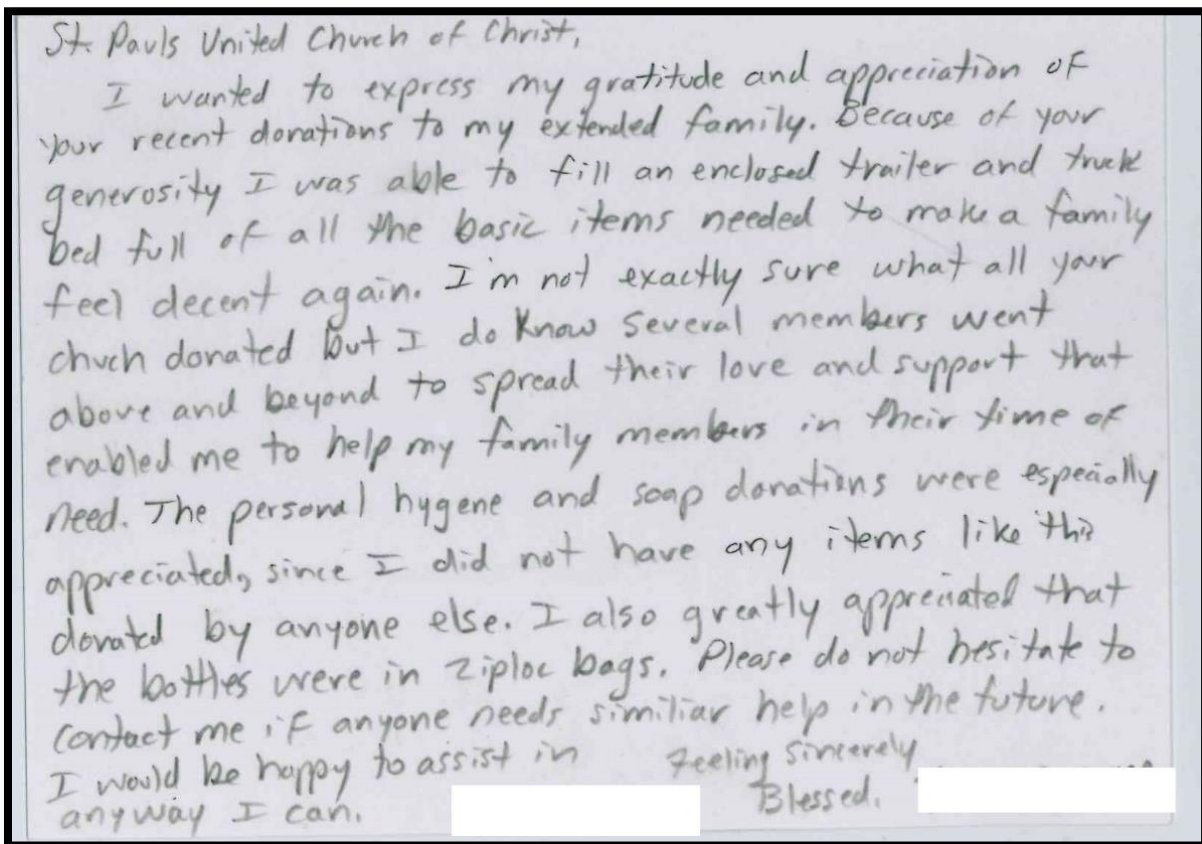 St. Pauls United Church of Christ,
I wanted to express my gratitude and appreciation of
your recent donations to my extended family. Because of your
generosity I was able to fill an enclosed trailer and truck
bed full of all the basic items needed to make a family
feel decent again. I'm not exactly sure what all your
chuch donated but I do know several members went
above and beyond to spread their love and support that
enabled me to help my family members in their time of
need. The personal hygene and soap donations were especially
appreciated, since I did not have any items like this
donated by anyone else. I also greatly appreciated that
the bottles were in ziploc bags. Please do not hesitate to
contact me if anyone needs similiar help in the future.
I would be happy to assist in
anyway I can.
Feeling Sincerely
Blessed.